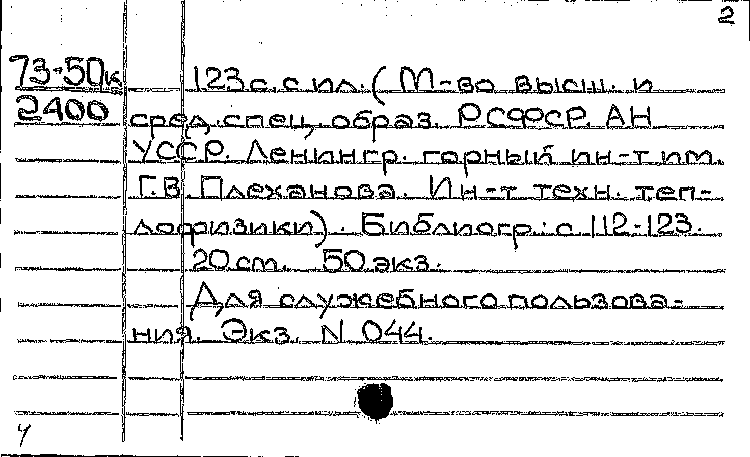 2
73-50к 123 с. с ил. (М-во высш. и
2400 сред. спец. образ. РСФСР. АН
УССР. Ленингр. горный ин-т им.
Г.В. Плеханова. Ин-т техн. теп-
лофизики). Библиогр.: с 112-123.
20 см. 50 экз.
Для служебного пользова-
ния. Экз. N 044.